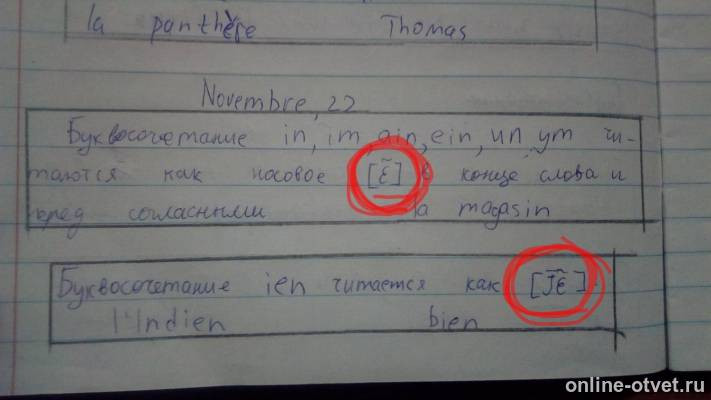 la panthère Thomas
Novembre, 22
Буквосочетание in, im, ain, ein, un, ym чи-
таются как носовое [ɛ̃] в конце слова и
перед согласными la magasin
Буквосочетание ien читается как [jɛ̃].
l'Indien bien
online-otvet.ru